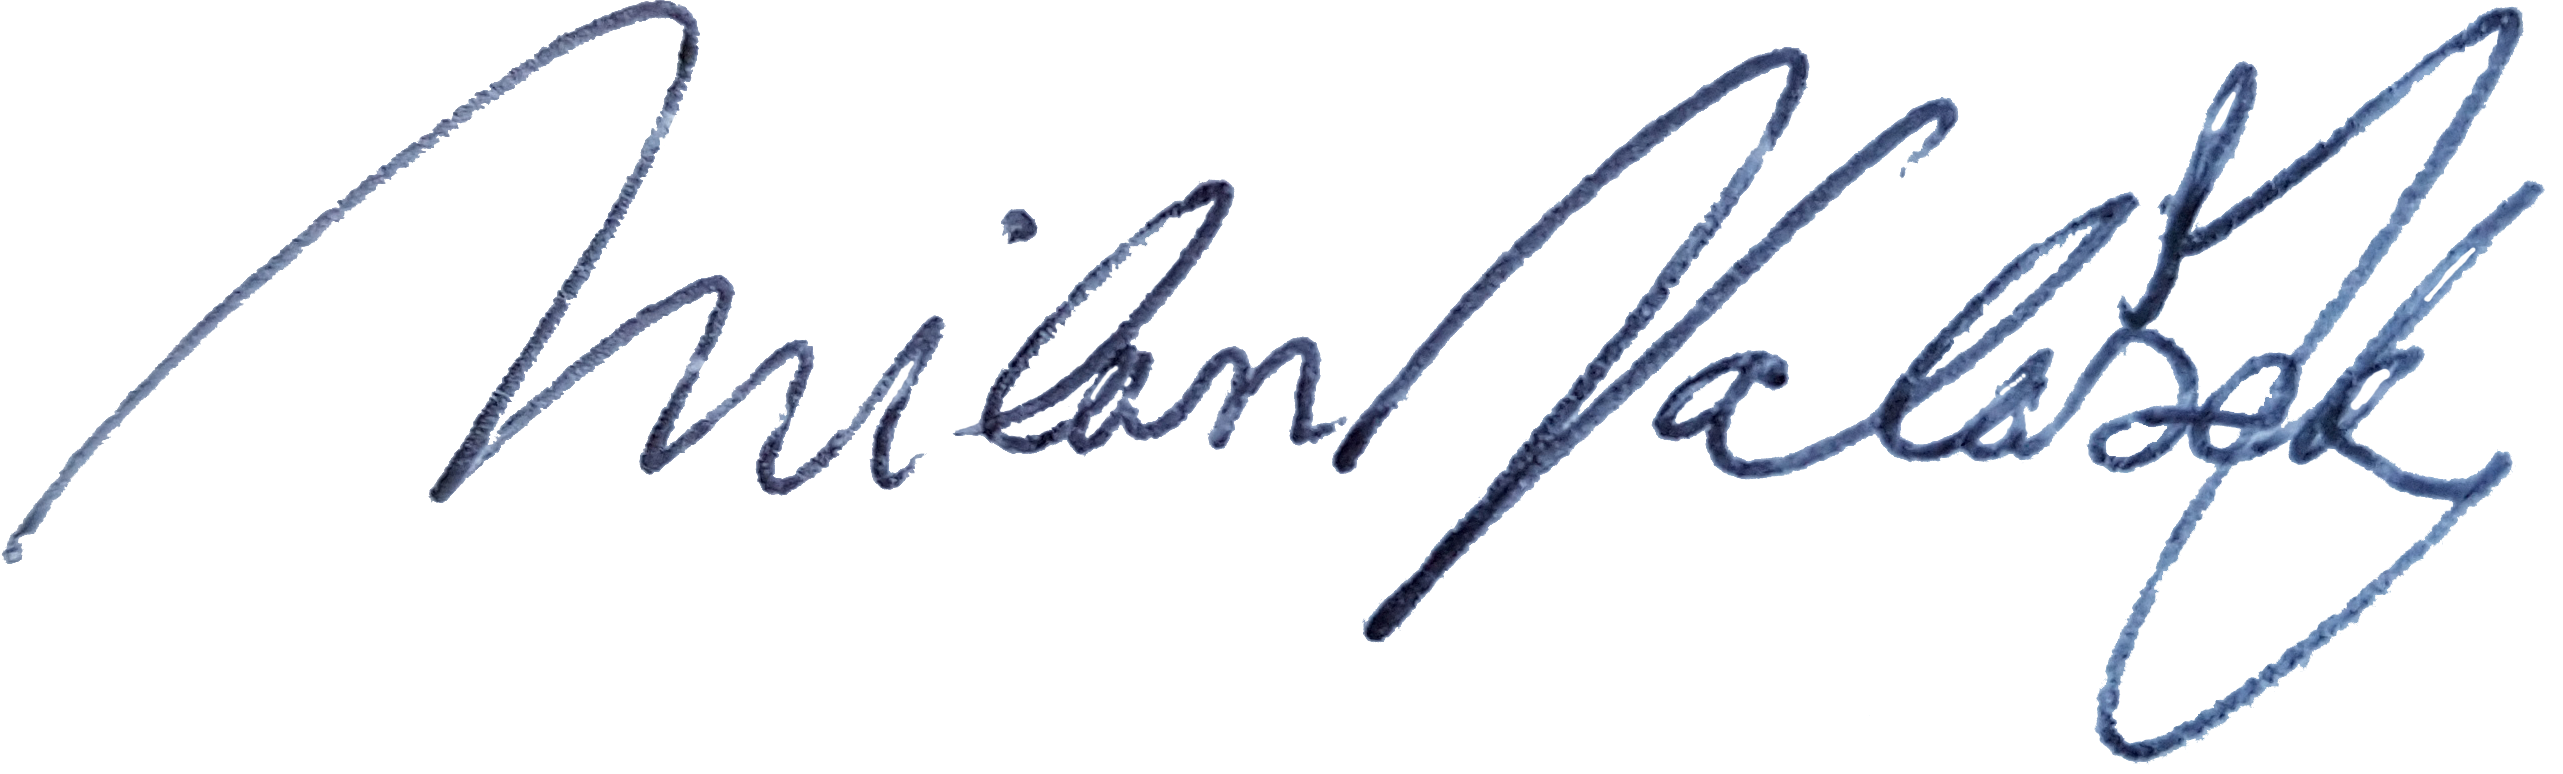 Milan Valášek